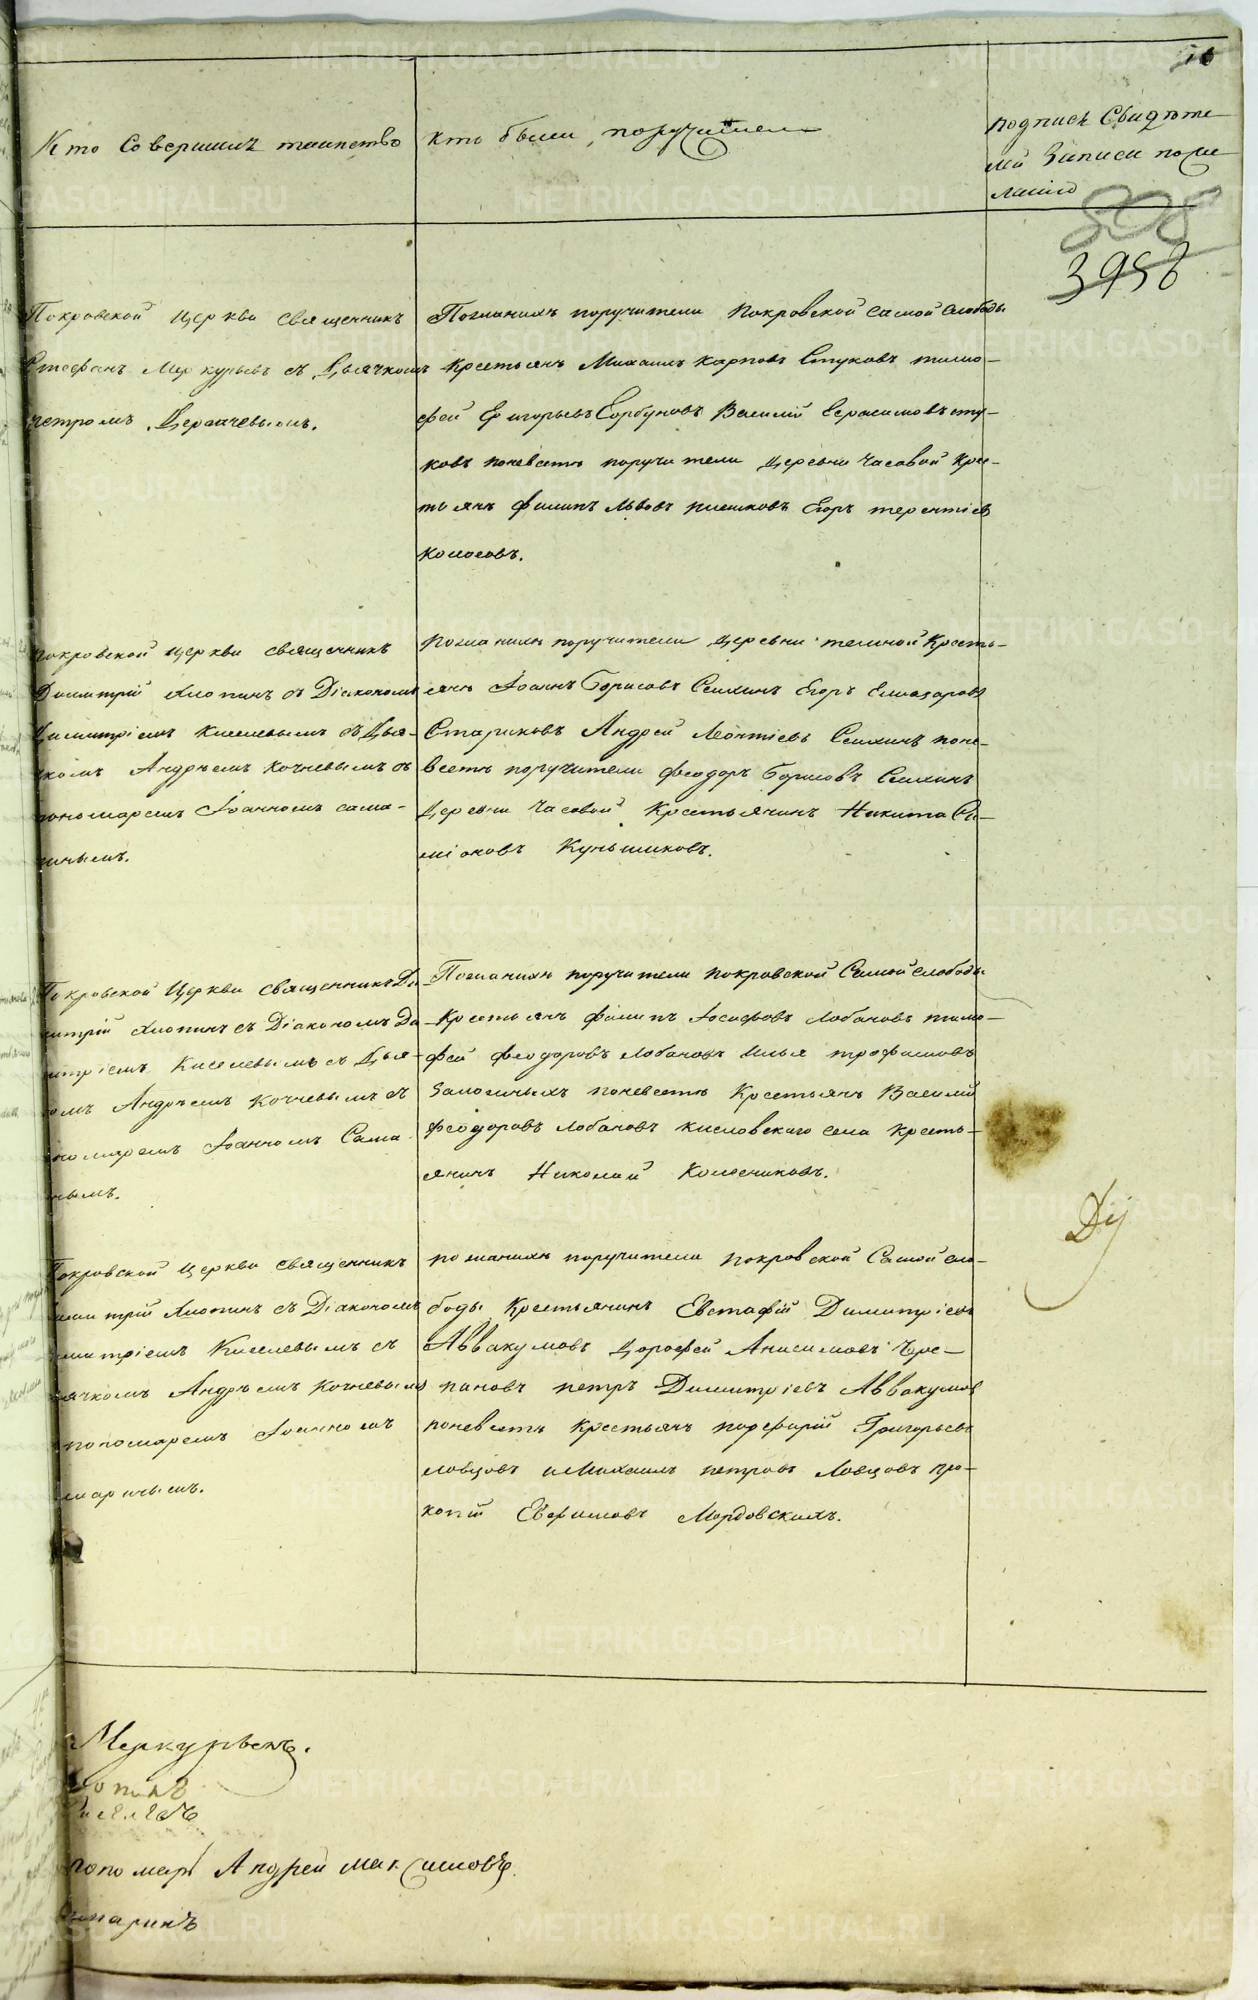 Кто Совершилъ таинство
кто были поручители
подпись Свидѣте
лей Записи по же
ланію
3958
Покровской Церкви священникъ
Стефанъ Меркурьевъ съ Дьячкомъ
петромъ
Пожанихѣ поручители Покровской самой слободы
Крестьянъ Михаилъ Карповъ Стуковъ тимо-
фей Григорьевъ Горбуновъ Василий Герасимовъ сту-
ковъ поневестѣ поручители деревни Часовой Кре-
тьянъ филипъ Львовъ Егоръ терентіев
Колосовъ.
покровской церкви священникъ
Димитрій Хлопинъ съ Діакономъ
Димитріемъ Киселевымъ съ Дья-
чкомъ Андреемъ Кочневымъ съ
пономаремъ Іоанномъ сама-
инымъ.
пожанихѣ поручители деревни темной Кресть-
янъ Іоаннъ Борисовъ Сплхинъ Егоръ Елиазаровъ
Стариковъ Андрей Леонтіевъ поне-
вестѣ поручители феодоръ Борисовъ
деревни Часовой Крестьянинъ Никита Си-
міоновъ
Покровской Церкви священникъ Ди
митрій Хлопинъ съ Діакономъ Ди
митріемъ Киселевымъ съ Дья-
комъ Андреемъ Кочневымъ съ
пономаремъ Іоанномъ Сама
нымъ.
Пожанихѣ поручители покровской Самой слободы
Крестьянъ филипъ Іосифовъ Лобановъ тимо-
фей феодоровъ Лобановъ Илья трофимовъ
поневестѣ Крестьянъ Василий
феодоровъ Лобановъ кисловскаго села Кресть-
янинъ Николай Колесниковъ.
Покровской церкви священникъ
Димитрій Хлопинъ съ Діакономъ
митріемъ Киселевымъ съ
ячкомъ Андреемъ Кочневымъ
пономаремъ Іоанномъ
маринымъ.
пожанихѣ поручители покровской Самой сло-
боды Крестьянинъ Евстафій Димитріевъ
Аввакумовъ Дорофей Анисимовъ Чре-
пановъ петръ Димитріевъ Аввакумов
поневестѣ Крестьянъ порфирій Григорьевъ
ловцовъ и Михаилъ петровъ Ловцовъ про-
копій Ефимовъ Мордовскихъ.
Меркурьевъ.
пономарь Андрей Максимовъ